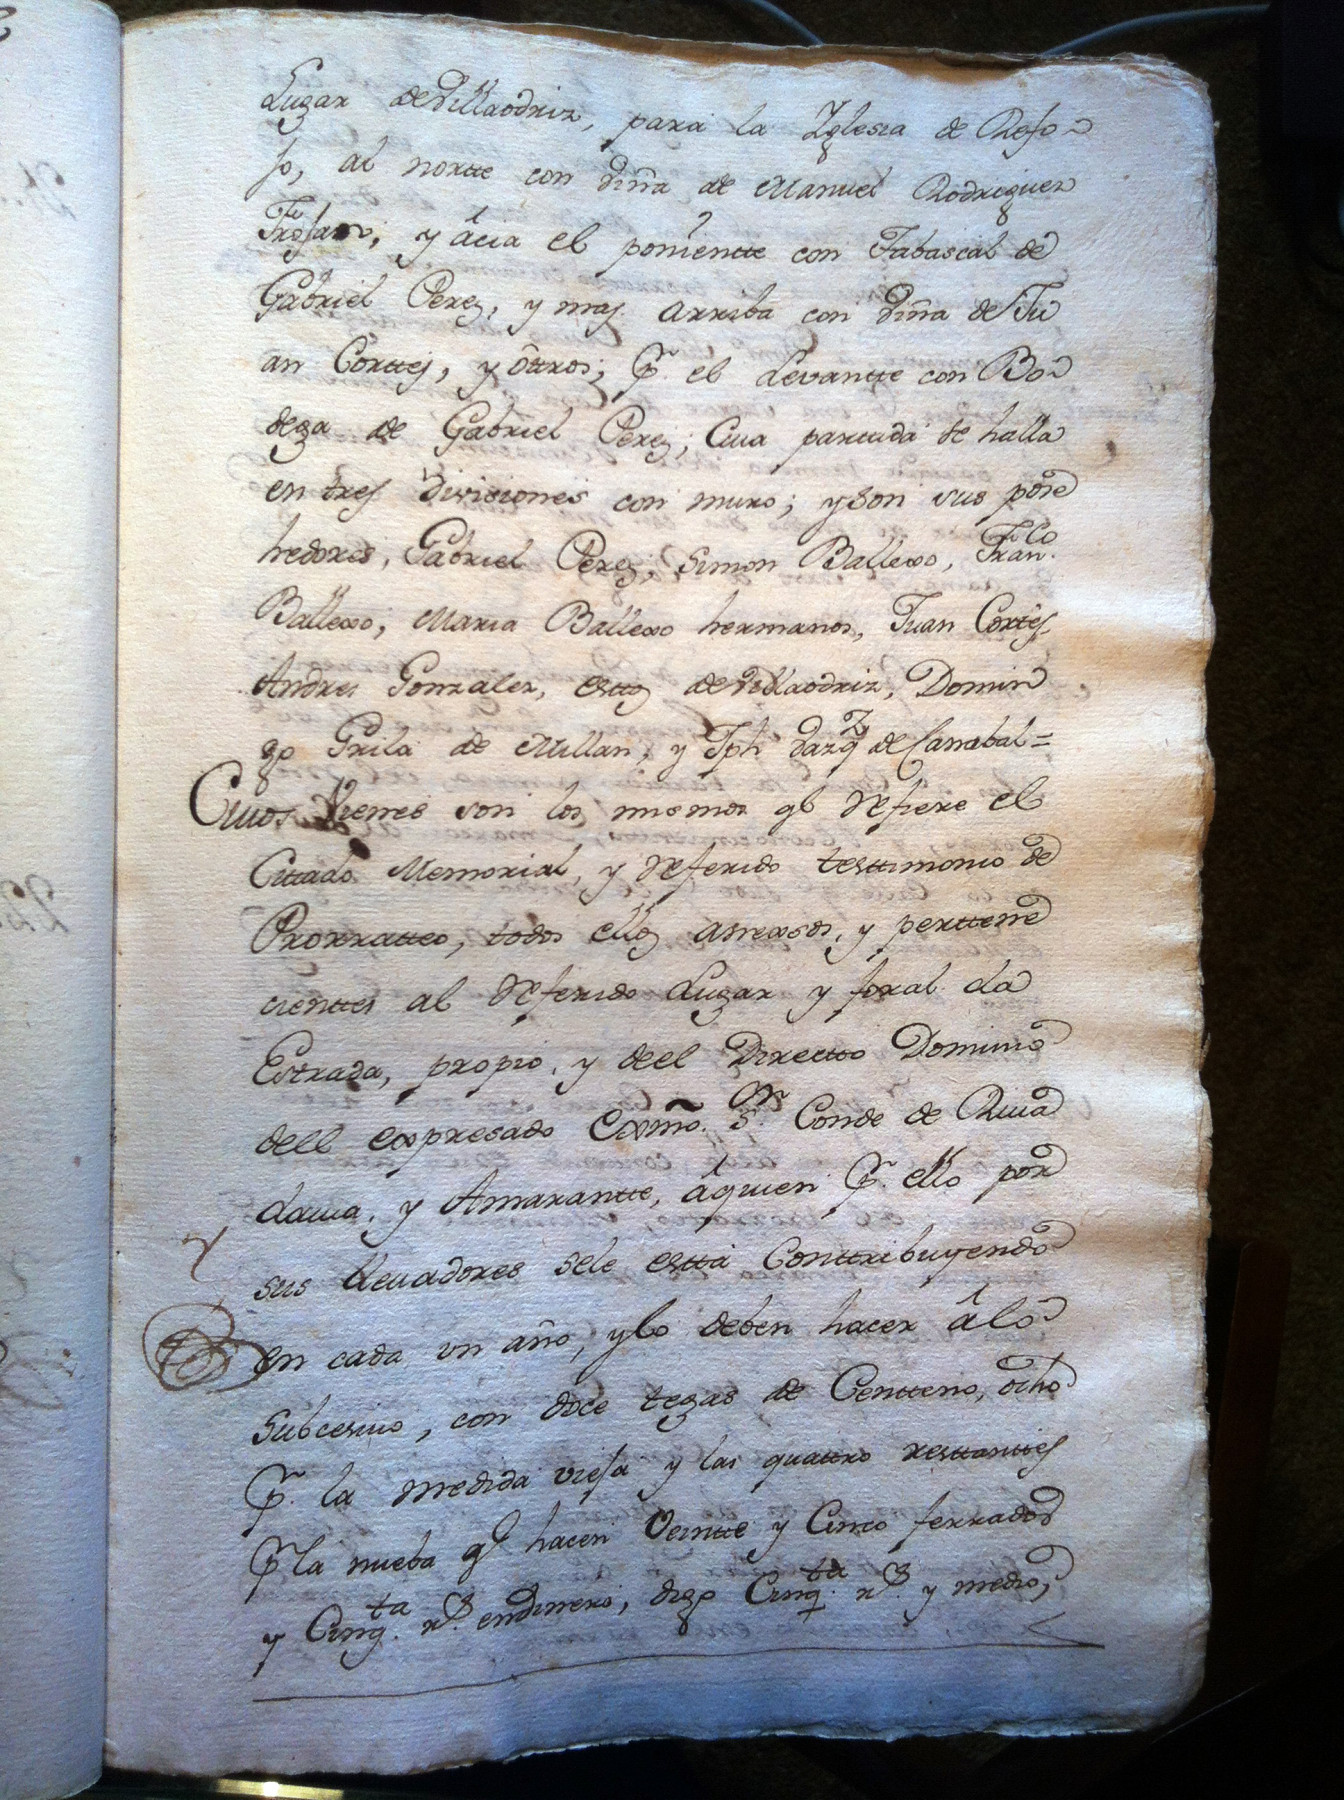 Lugar de Villaodriz, para la Yglesia de Refo-
jo, al nortte con viña de Manuel Rodriguez
y ácia el ponientte con Tabascal de
Gabriel Perez, y mas arriba con viña de Ju
an Corttes, y ôttros; Pr. el Levantte con Bo-
dega de Gabriel Perez; Cuia parttida se halla
en tres divisiones con muro; y son sus pose
hedores, Gabriel Perez, Simon Ballexo, Franco.
Ballexo, Maria Ballexo hermanos, Juan Cortes,
Andres Gonzalez, esttos de Villaodriz, Domin
go Grila de Millan, y Jph de Carrabal=
Cuios Vienes son los mismos qe. Refiere el
Cittado Memorial, y Referido testtimonio de
Prorratteo, todos ellos anexsos, y perttene
cienttes al Referido Lugar y foral da
Estrada, propio, y deel Directto Dominio
dell expresado Exmo. Sor. Conde de Riva
davia, y Amarantte, áquien Pr. ello por
sus Llevadores sele estta Conttribuyendo
en cada un año, y lo deben hacer á lo
Subcesivo, con doce tegas de Centteno, ôcho
Pr. la medida vieja y las quattro resttanttes
Pr. la nueba qe. hacen Veintte y Cinco ferrados
y Cinqta. rs. endinero, digo Cinqta. rs. y medio,